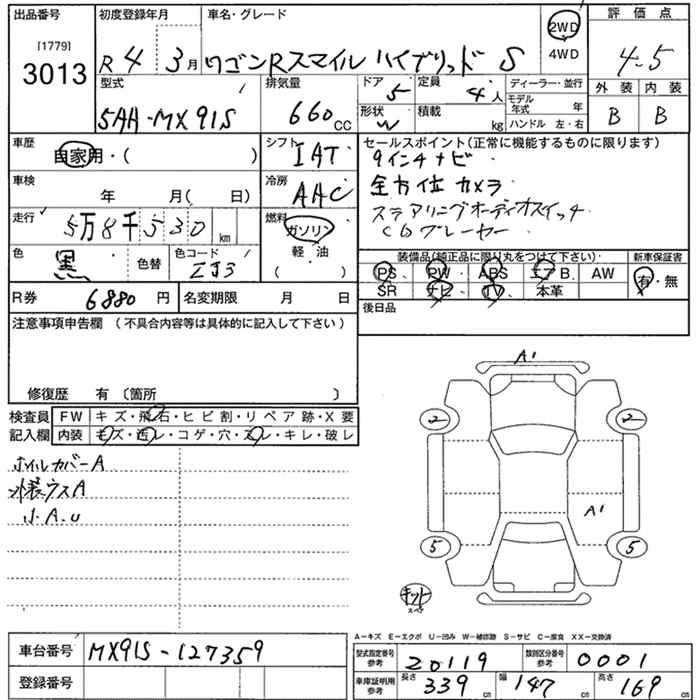 出品番号
[1779]
3013
初度登録年月
R 4 3月
車名・グレード
ワゴンRスマイル ハイブリッド S
2WD
4WD
評価点
4.5
外装 内装
B B
型式
5AA-MX91S
排気量
660 CC
ドア
5
定員
4人
形状
W
積載
kg
ディーラー・並行
モデル年式 年
ハンドル 左・右
車歴
自家用・( )
シフト
IAT
セールスポイント(正常に機能するものに限ります)
9インチナビ
全方位カメラ
ステアリングオーディオスイッチ
車検
年 月( 日)
冷房
AAC
走行
5万8千530 km
燃料
ガソリン
軽・油
( )
色
黒
色替
色コード
ZJ3
装備品(純正品に限り丸をつけて下さい)
PS PW ABS エアB. AW
SR ナビ TV 本革
新車保証書
有・無
R券 6880 円
名変期限 月 日
後日品
注意事項申告欄 (不具合内容等は具体的に記入して下さい)
修復歴 有 〔箇所 〕
検査員記入欄
FW キズ・飛石・ヒビ割・リペア跡・X要
内装 キズ・汚レ・コゲ・穴・スレ・キレ・破レ
ホイルカバーA
外装ウスA
小A.U
A1
2 2
A1
5 5
キット
スペア
A-キズ E-エクボ U-凹み W-補修跡 S-サビ C-腐食 XX-交換済
車台番号 MX91S-127359
登録番号
型式指定番号 参考 20119
類別区分番号 参考 0001
車庫証明用 参考 長さ 339 cm 幅 147 cm 高さ 169 cm